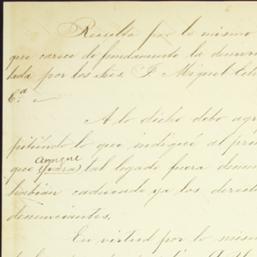 Resulta por lo mismo
que carece de fundamento la denun
tada por los Sres. F. Miguel
Cª
A lo dicho debo agr
pitiendo lo que indiqué al prin
aunque
que (fuera) tal legado fuera denun
habian caducado ya los derech
denunciantes.
En virtud por lo mism